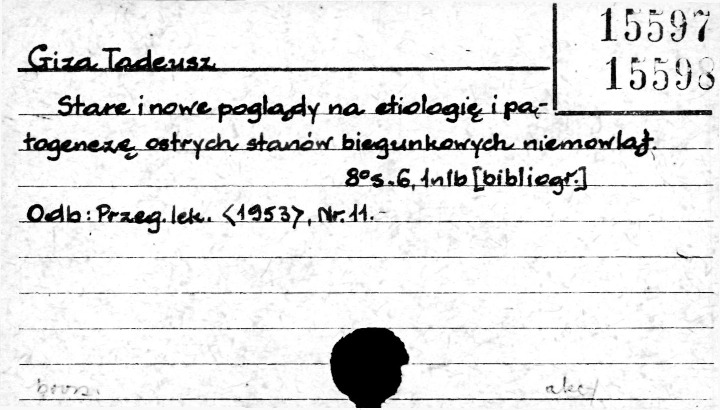 15597
15598
Giza Tadeusz
Stare i nowe poglądy na etiologię i pa-
togenezę ostrych stanów biegunkowych niemowląt.
8° s. 6, 1nlb [bibliogr.]
Odb: Przeg. lek. <1953>, Nr. 11.-